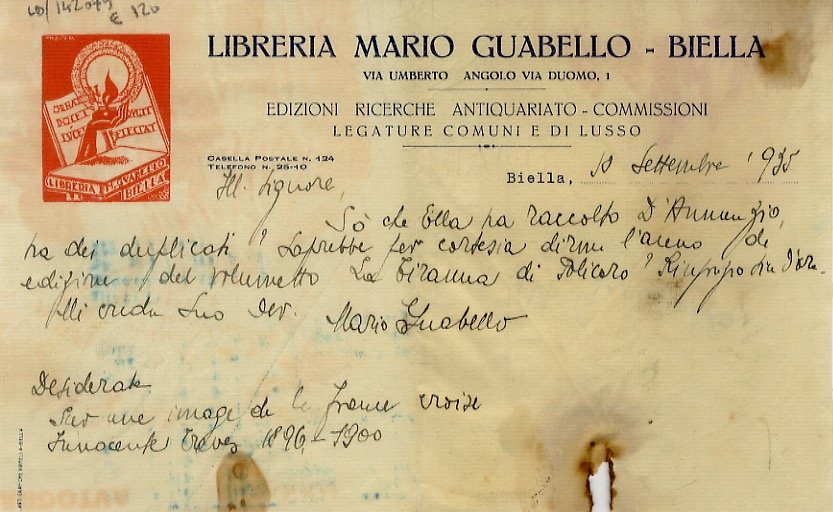 LD/142075
€ 120
LIBRERIA MARIO GUABELLO - BIELLA
VIA UMBERTO ANGOLO VIA DUOMO, 1
EDIZIONI RICERCHE ANTIQUARIATO - COMMISSIONI
LEGATURE COMUNI E DI LUSSO
CASELLA POSTALE N. 124
TELEFONO N. 25-40
LIBRERIA M. GUABELLO
BIELLA
Biella, 10 Settembre 1935
Ill. Signore,
So che Ella ha raccolto D'Annunzio,
ha dei duplicati? Saprebbe per cortesia dirmi l'anno di
edizione del volumetto La Tiranna di Policoro?
Mi creda Suo Dev. Mario Guabello
Desiderate
Sur une image de la France croise
Innocente Treves 1896-1900